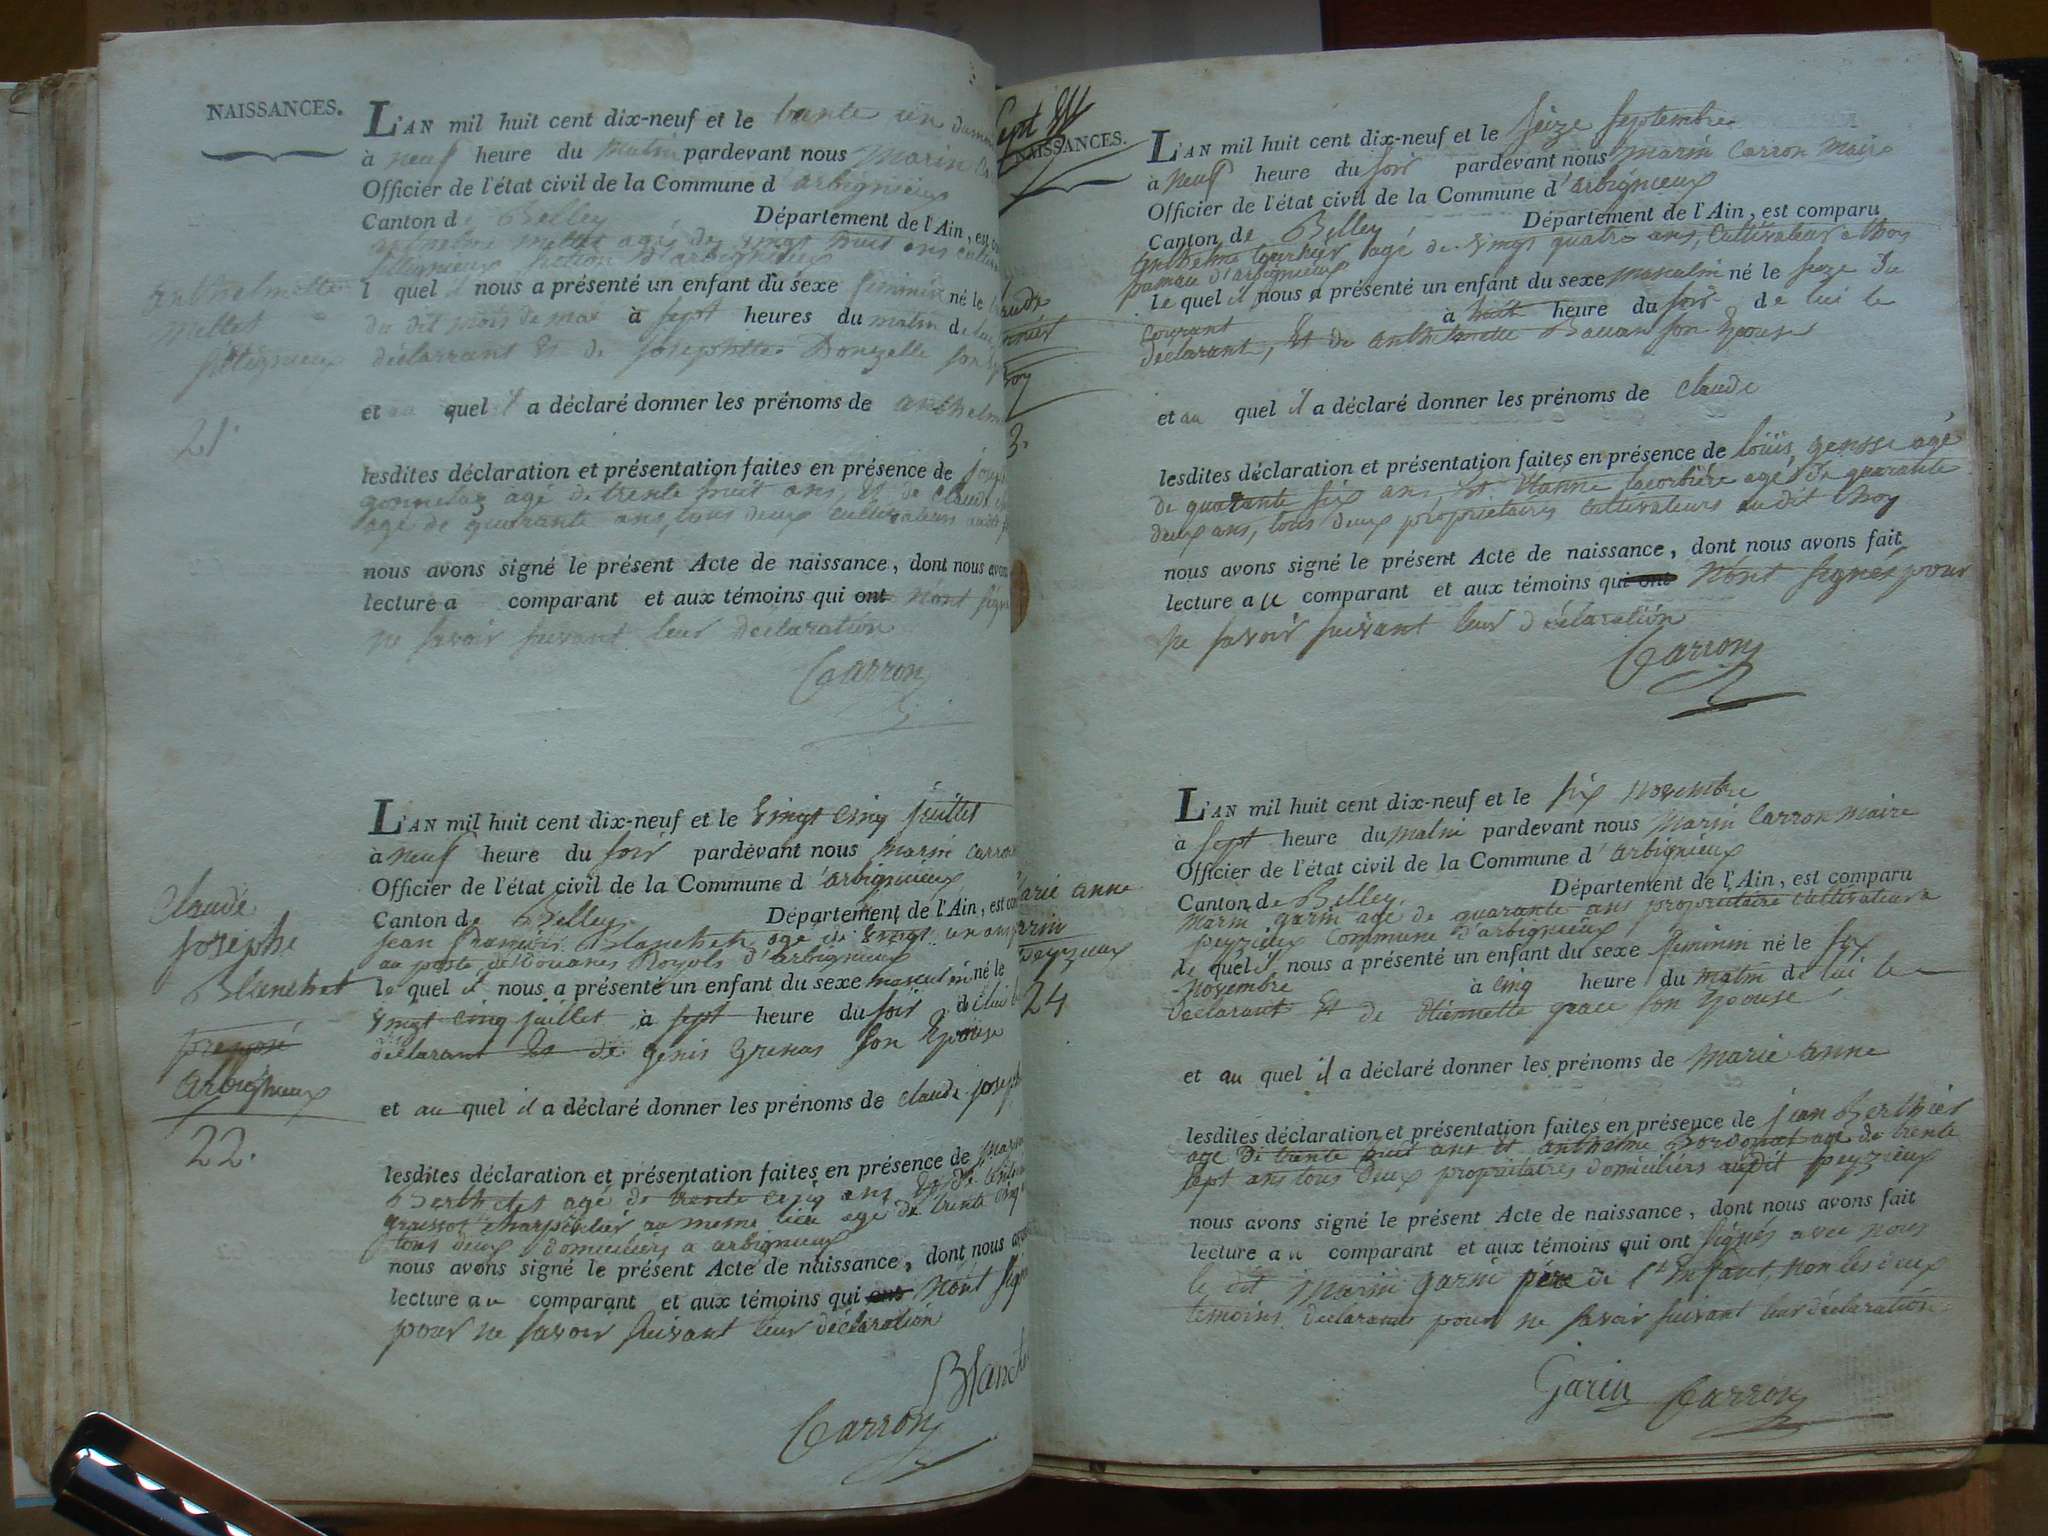 NAISSANCES.
L'AN mil huit cent dix-neuf et le trente un
à neuf heure du matin pardevant nous Marin
Officier de l'état civil de la Commune d'arbignieux
Canton de Belley Département de l'Ain, est
anthelme mellet agé de vingt huit ans
section d'arbignieux
l quel il nous a présenté un enfant du sexe feminin né le
du dit mois de mai à sept heures du matin de
déclarrant Et de Josephtte Donzelle son
et au quel il a déclaré donner les prénoms de anthelm
lesdites déclaration et présentation faites en présence de
gonnetaz agé de trente huit ans, Et de Claude
agé de quarante ans, tous deux cultivateurs
nous avons signé le présent Acte de naissance, dont nous avon
lecture a comparant et aux témoins qui ont nont signé
ne savoir suivant leur déclaration
Carron
anthelmette
mellet
21.
L'AN mil huit cent dix-neuf et le vingt cinq juillet
à neuf heure du soir pardevant nous marin carron
Officier de l'état civil de la Commune d'arbignieux
Canton de Belley. Département de l'Ain, est com
jean françois Blanchet agé de vingt un ans
au poste de Douanes Royals d'arbignieux
le quel il nous a présenté un enfant du sexe masculin né le
vingt cinq juillet à sept heure du soir de lui le
déclarant Et de genis grenas son Epouse
et au quel il a déclaré donner les prénoms de claude joseph
lesdites déclaration et présentation faites en présence de
Berthelet agé de trente cinq ans Et de
charpentier au meme lieu agé de trente cinq
tous deux domiciliers a arbignieux
nous avons signé le présent Acte de naissance, dont nous
lecture au comparant et aux témoins qui ont nont signé
pour ne savoir suivant leur déclaration
Blanche
Carron
claude
josephe
Blanchet
preposé
arbignieux
22.
Sept
NAISSANCES.
L'AN mil huit cent dix-neuf et le seize septembre
à neuf heure du soir pardevant nous marin Carron Maire
Officier de l'état civil de la Commune d'arbignieux
Canton de Belley Département de l'Ain, est comparu
anthelme agé de vingt quatre ans, cultivateur a thoy
hamau d'arbignieux
le quel il nous a présenté un enfant du sexe masculin né le seize du
courant à huit heure du soir de lui le
declarant, Et de anthelmette son Epouse
et au quel il a déclaré donner les prénoms de claude
lesdites déclaration et présentation faites en présence de louis gensse agé
de quarante six ans, Et Etienne lacorbière agé de quarante
deux ans, tous deux proprietaires cultivateurs audit thoy
nous avons signé le présent Acte de naissance, dont nous avons fait
lecture au comparant et aux témoins qui ont nont signés pour
ne savoir suivant leur déclaration
Carron
3.
L'AN mil huit cent dix-neuf et le six novembre
à sept heure du matin pardevant nous Marin Carron maire
Officier de l'état civil de la Commune d'arbignieux
Canton de Belley. Département de l'Ain, est comparu
marin garin agé de quarante ans proprietaire cultivateur a
peyzieux Commune d'arbignieux
le quel il nous a présenté un enfant du sexe feminin né le six
novembre à cinq heure du matin de lui le
déclarant Et de Etiennette grace son Epouse
et au quel il a déclaré donner les prénoms de marie anne
lesdites déclaration et présentation faites en présence de jean Berthiet
agé de trente huit ans et anthelme agé de trente
sept ans tous deux proprietaires domiciliers audit peyzieux
nous avons signé le présent Acte de naissance, dont nous avons fait
lecture au comparant et aux témoins qui ont signés avec nous
le dit marin garin père de l'Enfant, non les deux
témoins declarants pour ne savoir suivant leur déclaration
Garin Carron
arie anne
arin
peyzieux
24